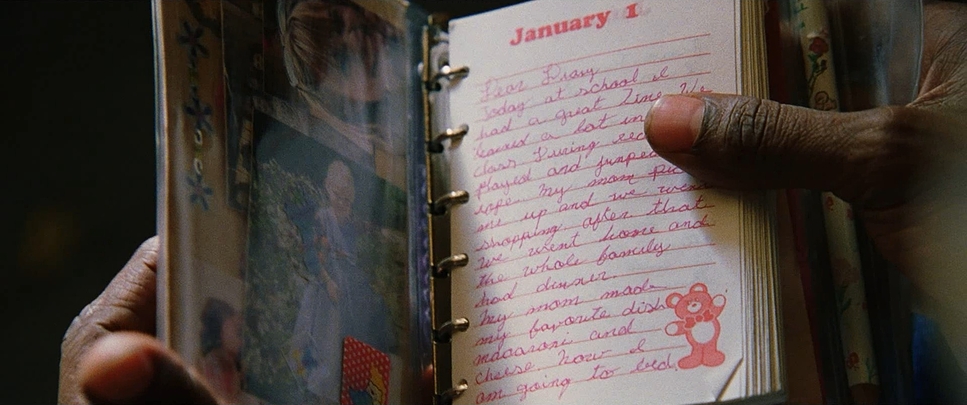 January 1
Dear Diary
Today at school I
had a great time. We
learned a lot in
class. During rec
played and jumped
rope. My mom pic
me up and we went
shopping after that
we went home and
the whole family
had dinner.
My mom made
my favorite dish
macaroni and
cheese. Now I
am going to bed.